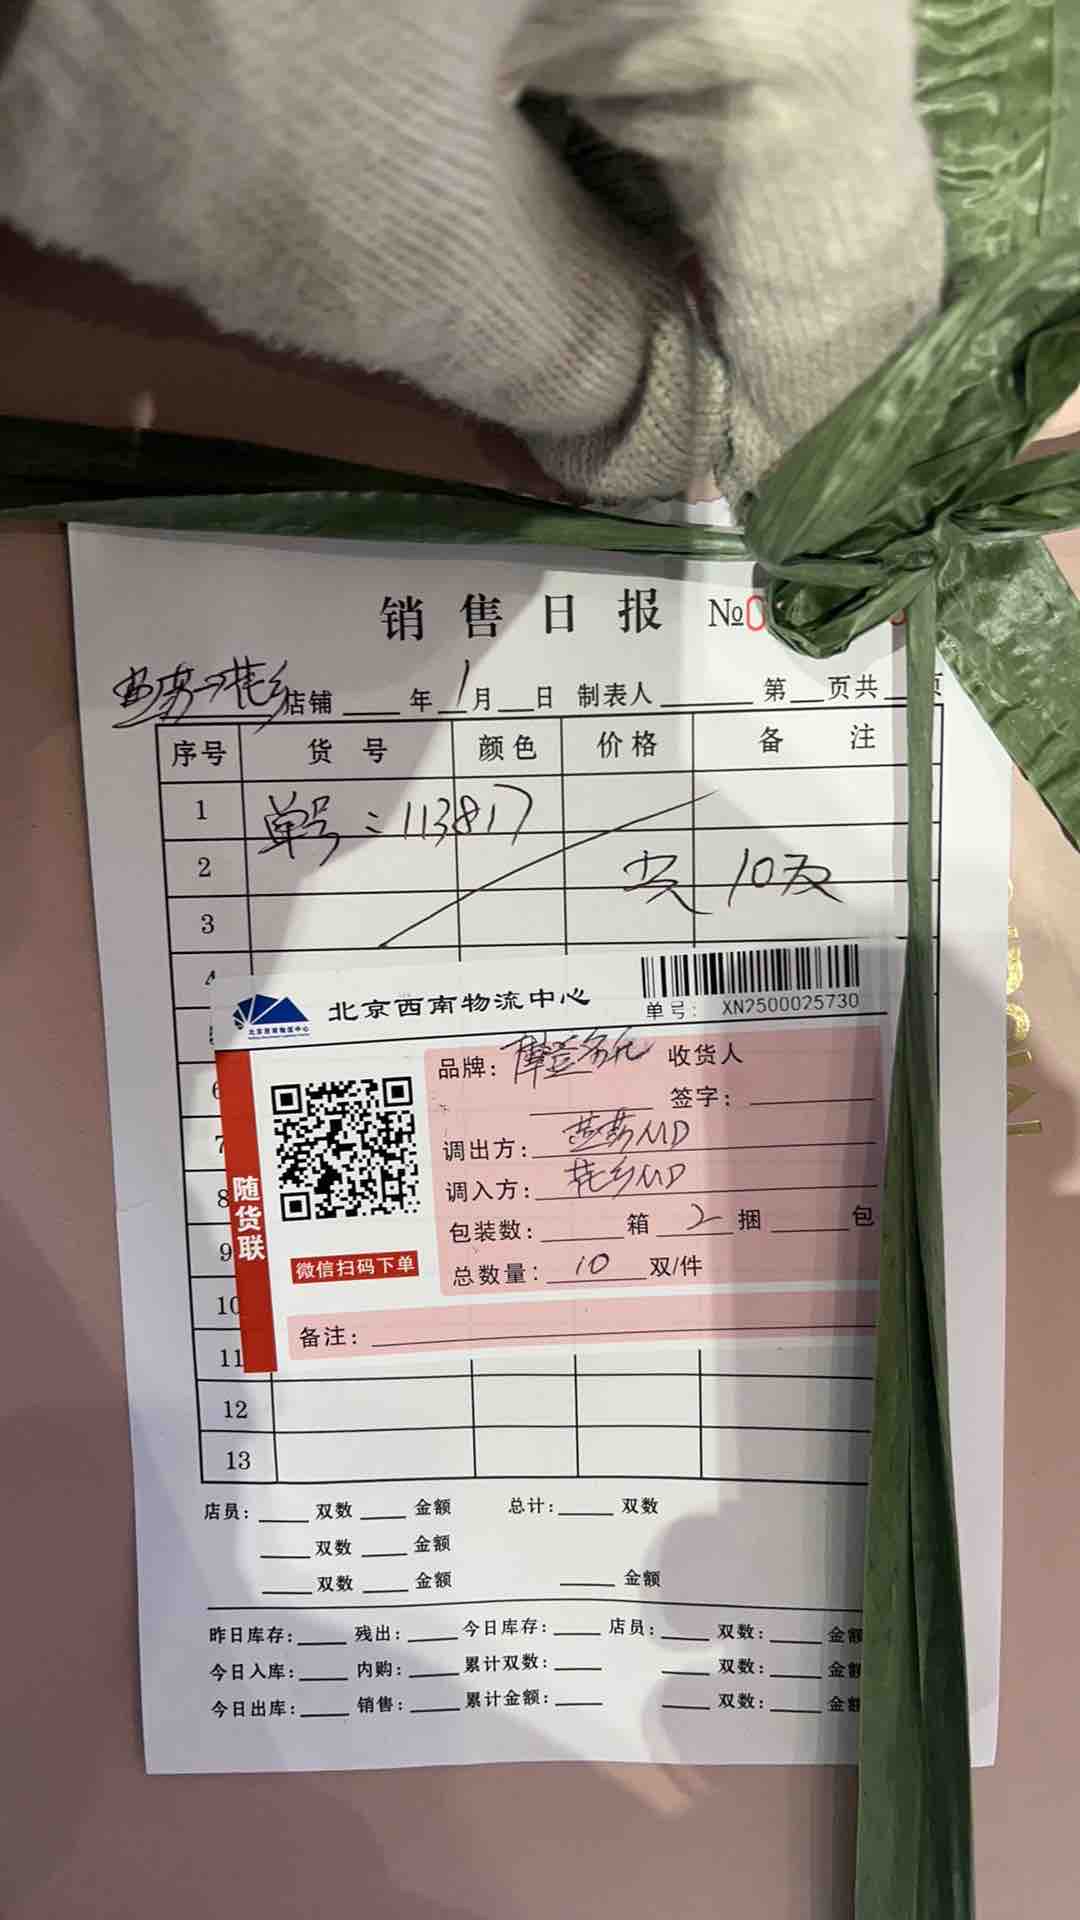 销售日报 №0
花乡店铺 ____ 年 1 月 ___ 日 制表人 ______ 第 __ 页共 __ 页
序号 货号 颜色 价格 备注
1 单号:113817
2 共 10双
3
4
北京西南物流中心
北京西南物流中心
单号: XN2500025730
6
品牌: 收货人
签字:
7
调出方: 燕莎MD
8
调入方: 花乡MD
9
包装数: ____ 箱 2 捆 ____ 包
随货联
微信扫码下单
总数量: 10 双/件
10
备注:
11
12
13
店员: ___ 双数 ___ 金额 总计: ___ 双数
___ 双数 ___ 金额
___ 双数 ___ 金额 ___ 金额
昨日库存: ___ 残出: ___ 今日库存: ___ 店员: ___ 双数: ___ 金额
今日入库: ___ 内购: ___ 累计双数: ___ ___ 双数: ___ 金额
今日出库: ___ 销售: ___ 累计金额: ___ ___ 双数: ___ 金额